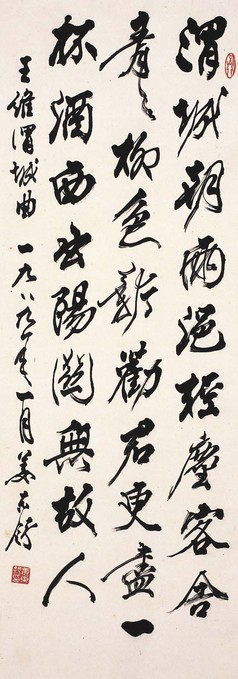 渭城朝雨浥輕塵客舍
青々柳色新勸君更盡一
杯酒西出陽關無故人
王維渭城曲 一九八九年一月 姜东舒